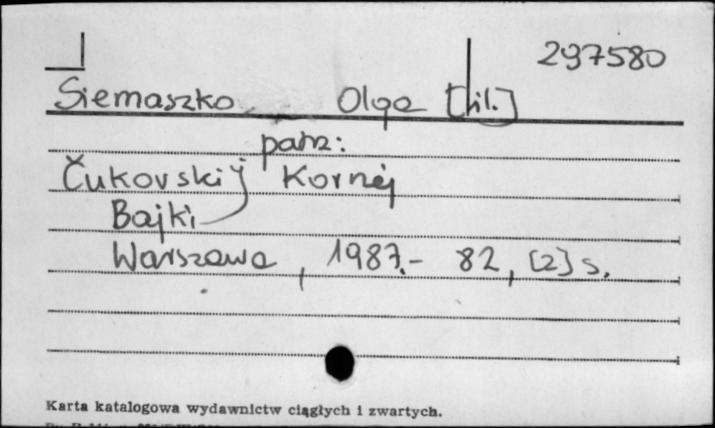 297580
Siemaszko Olga [il.]
patrz:
Čukovskij Kornej
Bajki
Warszawa, 1987.- 82, [2] s.
Karta katalogowa wydawnictw ciągłych i zwartych.